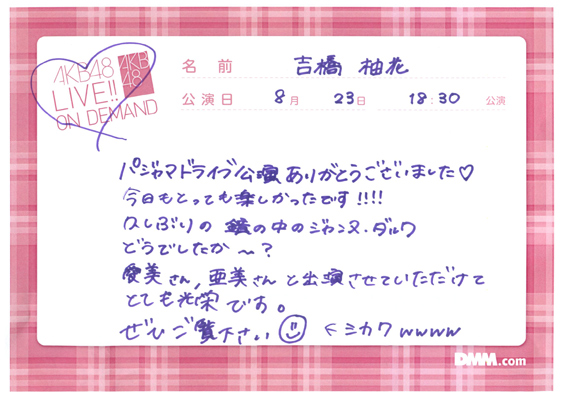 AKB48
LIVE!!
ON DEMAND
AKB
48
名前 吉橋 柚花
公演日 8月 23日 18:30 公演
パジャマドライブ公演ありがとうございました♡
今日もとっても楽しかったです!!!!
久しぶりの 鏡の中のジャンヌ・ダルク
どうでしたか〜?
愛美さん,亜美さんと出演させていただけて
とても光栄です。
ぜひご覧下さい ☺ ←ミカワwwww
DMM.com